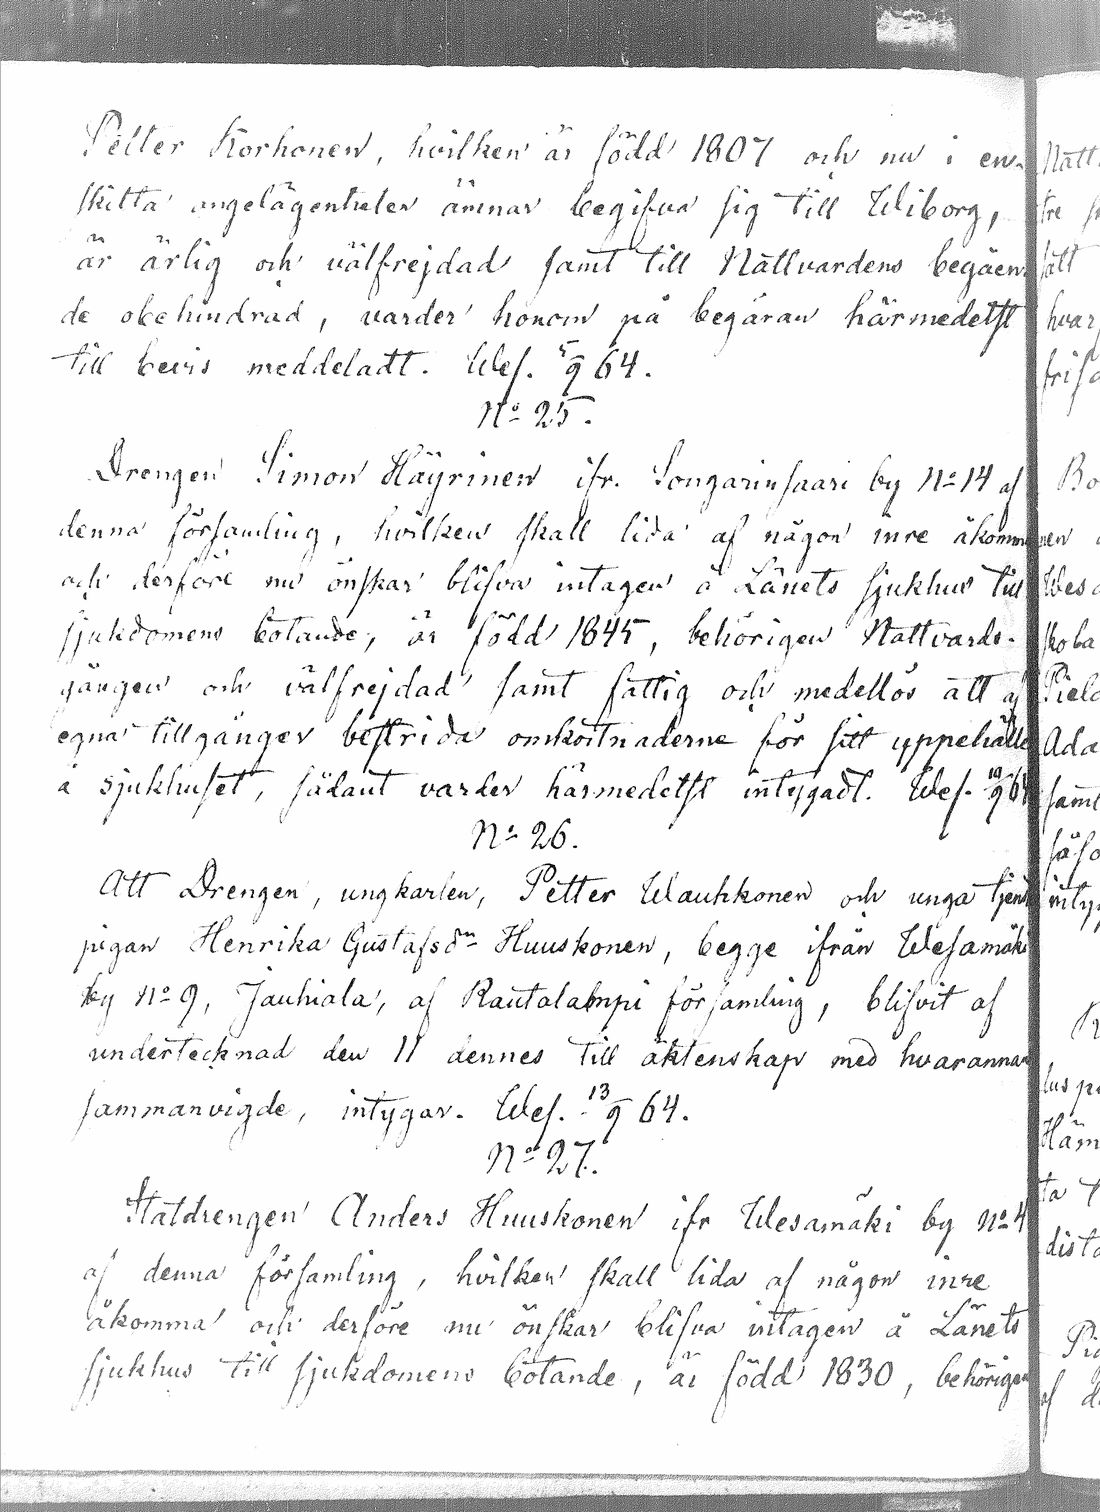 Petter Korhonen, hvilken är född 1807 och nu i en-
skilta angelägenheter ämnar begifva sig till Wiborg,
är ärlig och välfrejdad samt till Nattvardens begåen-
de obehindrad, varder honom på begäran härmedelst
till bevis meddeladt. Wes. 5/9 64.
No 25.
Drengen Simon Häyrinen ifr. Songarinsaari by No 14 af
denna församling, hvilken skall lida af någon inre åkomm
och derföre nu önskar blifva intagen å Länets sjukhus till
sjukdomens botande, är född 1845, behörigen Nattvards-
gången och välfrejdad samt fattig och medellös att af
egna tillgångar bestrida omkostnaderne för sitt uppehälle
å sjukhuset, sådant varder härmedelst intygadt. Wes. 10/9 64
No 26.
Att Drengen, ungkarlen, Petter Wauhkonen och unga tjenst
pigan Henrika Gustafsdn Huuskonen, begge ifrån Wesamäki
by No 9, Jauhiala, af Rautalampi församling, blifvit af
undertecknad den 11 dennes till äktenskap med hvarannan
sammanvigde, intygar. Wes. 13/9 64.
No 27.
Statdrengen Anders Huuskonen ifr Wesamäki by No 4
af denna församling, hvilken skall lida af någon inre
åkomma och derföre nu önskar blifva intagen å Länets
sjukhus till sjukdomens botande, är född 1830, behörigen